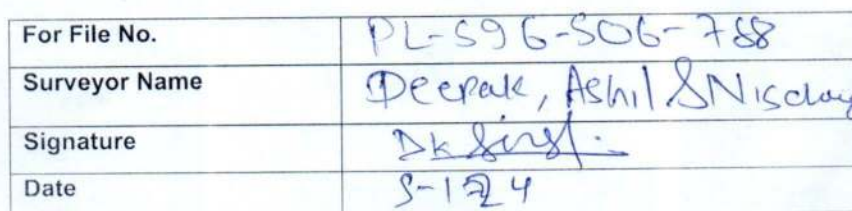 For File No. PL-596-506-788
Surveyor Name Deepak, Ashil &
Signature DK Singh
Date